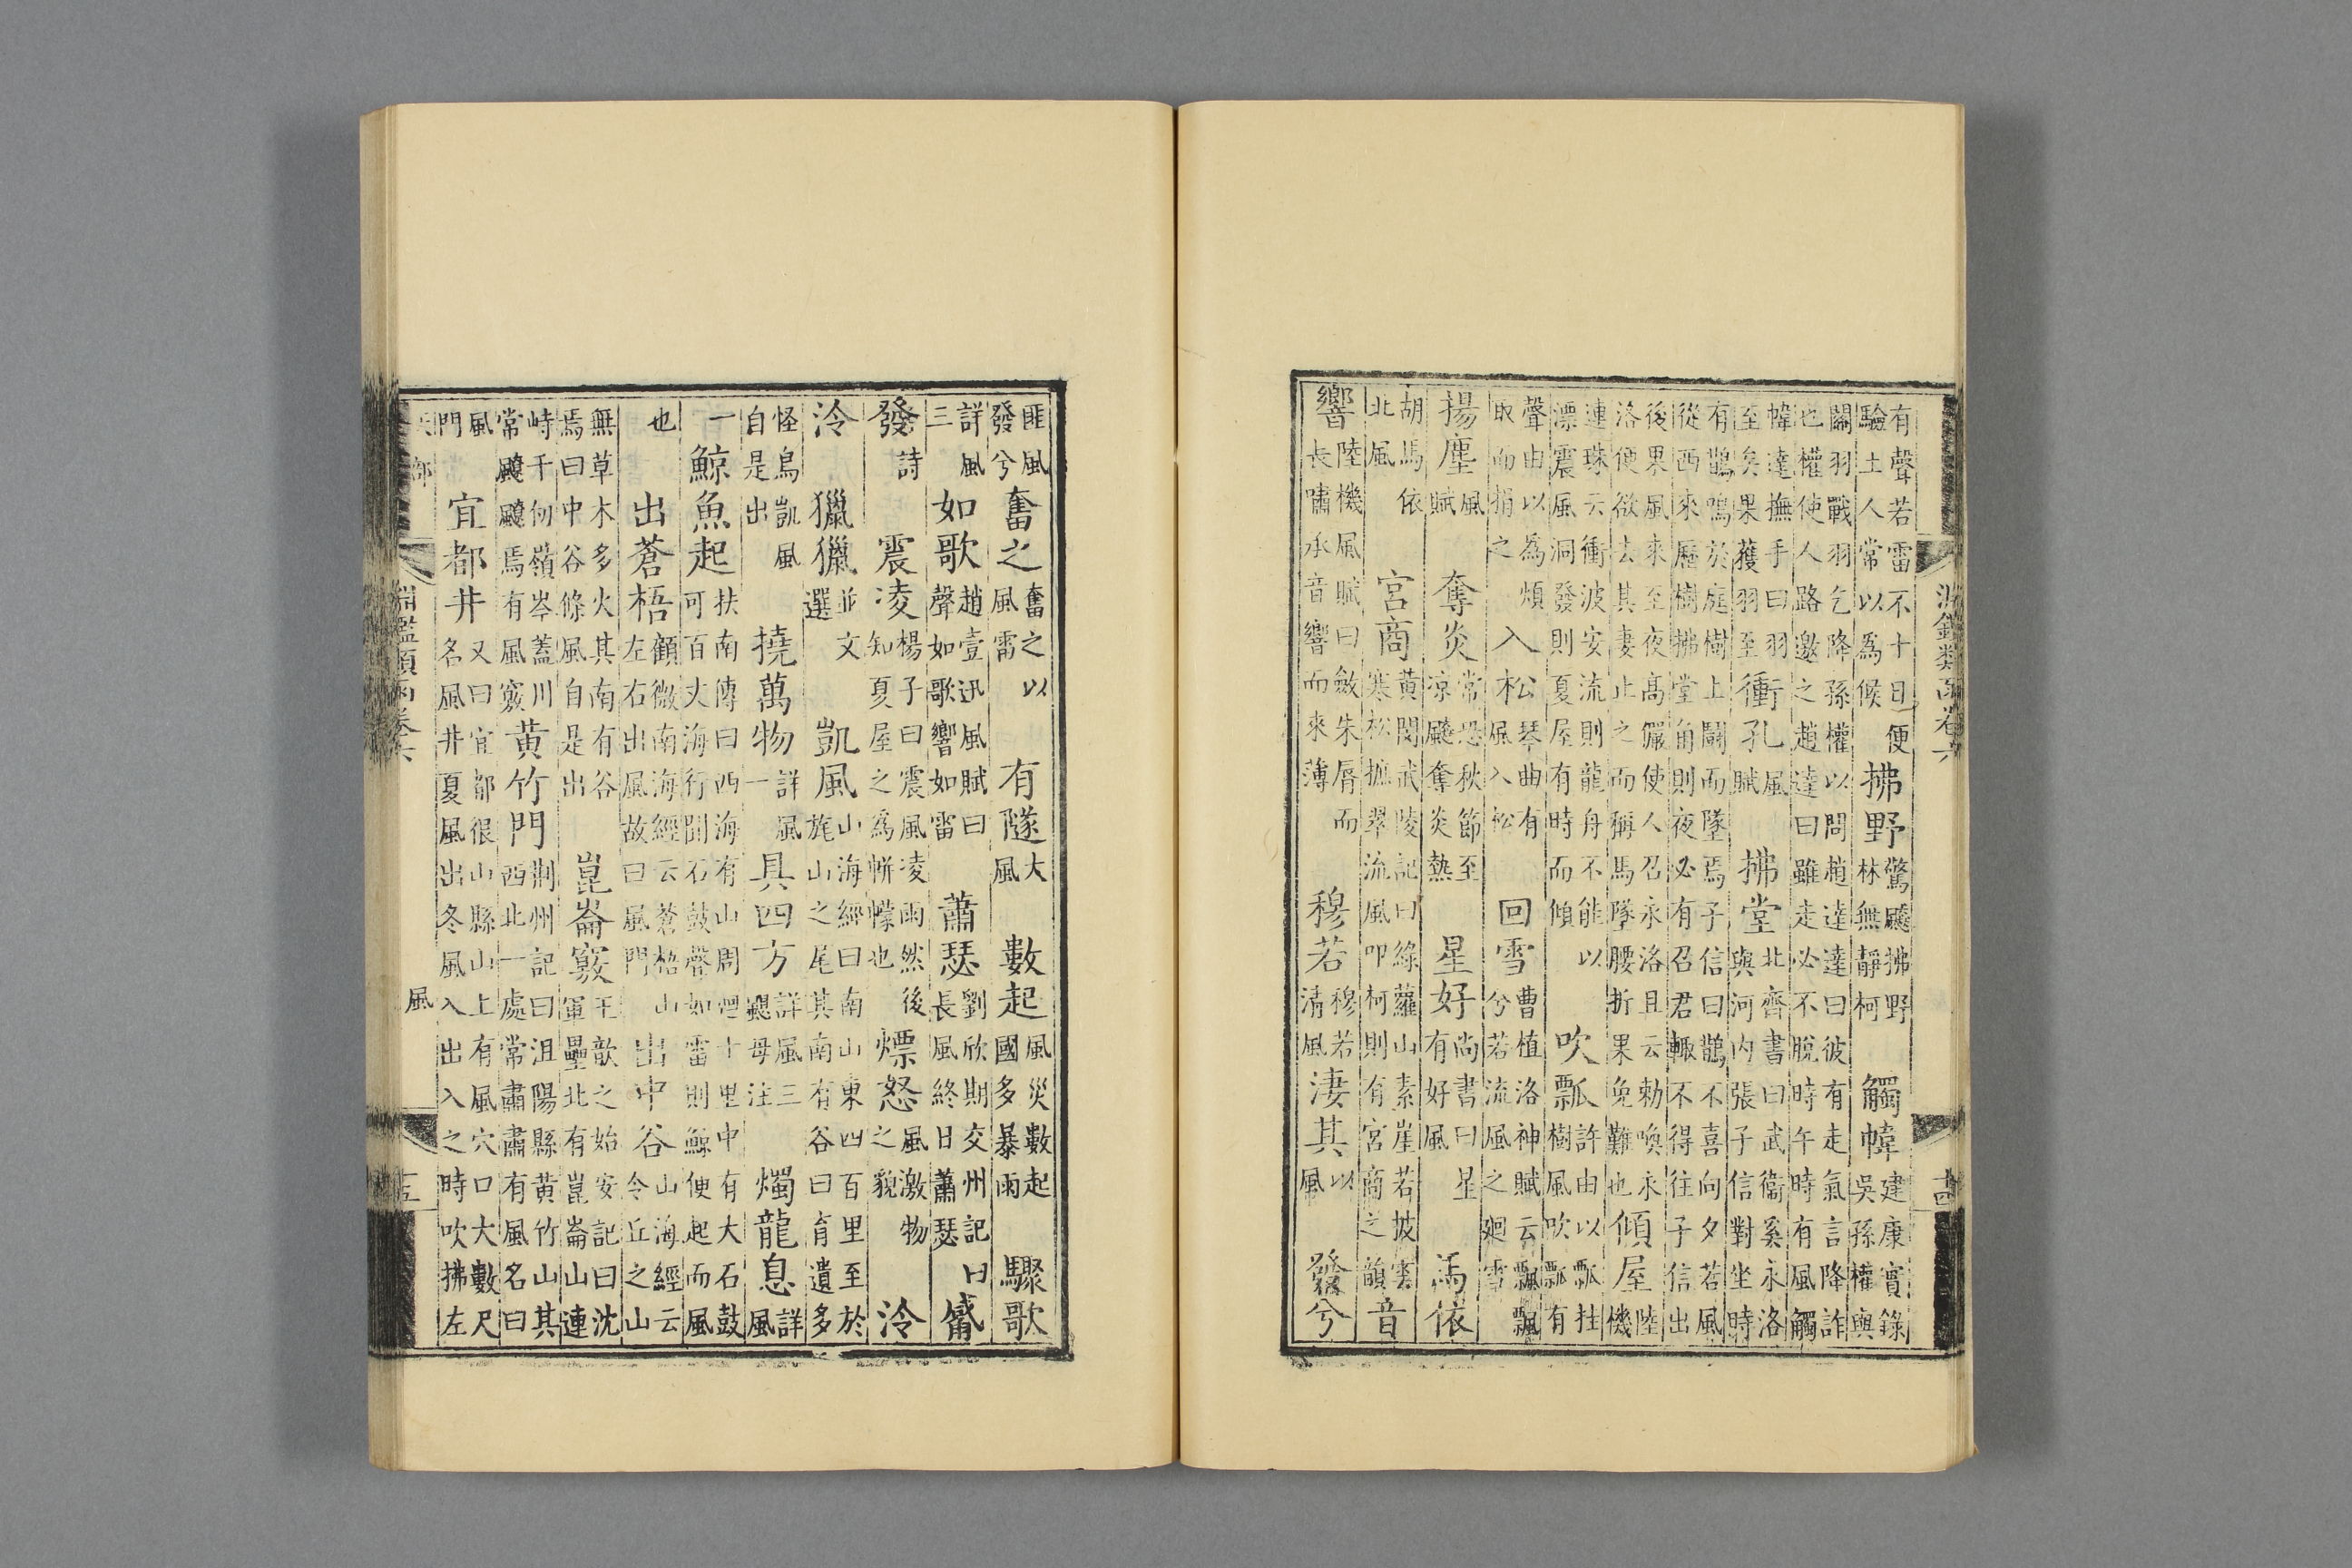 淵鑑類函卷六 十四
有聲若雷不十日便驗土人常以為候 拂野 驚飈拂野林無靜柯 觸幃 建康實錄吳孫權與
關羽戰羽乞降孫權以問趙達達曰彼有走氣言降詐也權使人路邀之趙達曰雖走必不脫時午時有風觸
幃達撫手曰羽至矣果獲羽至 衝孔 風賦 拂堂 北齊書曰武衞奚永洛與河內張子信對坐時
有鵲鳴於庭樹上鬭而墜焉子信曰鵲不喜向夕若風從西來歷樹拂堂角則夜必有召君輙不得往子信出
後果風來至夜高儼使人召永洛且云勅喚永洛便欲去其妻止之而稱馬墜腰折果免難也 傾屋 陸機
連珠云衝波安流則龍舟不能以漂震風洞發則夏屋有時而傾 吹瓢 許由以瓢挂樹風吹瓢有
聲由以為煩取而捐之 入松 琴曲有風入松 回雪 曹植洛神賦云飄飄兮若流風之廻雪
揚塵 風賦 奪炎 常恐秋節至凉飈奪炎熱 星好 尚書曰星有好風 馬依
胡馬依北風 宮商 黃閔武陵記曰綠蘿山素崖若披雲寒松摭翠流風叩柯則有宮商之韻 音
響 陸機風賦曰斂朱脣而長嘯承音響而來薄 穆若 穆若清風 淒其 以風 發兮
匪風發兮 奮之 奮之以風雷 有隧 大風 數起 風災數起國多暴雨 驟歌
詳風三 如歌 趙壹迅風賦曰聲如歌響如雷 蕭瑟 劉欣期交州記曰長風終日蕭瑟 觱
發 詩 震凌 楊子曰震風凌雨然後知夏屋之為帡幪也 熛怒 風激物之貌 泠
泠 獵獵 並文選 凱風 山海經曰南山東四百里至於旄山之尾其南有谷曰育遺多
怪鳥凱風自是出 撓萬物 詳風一 具四方 詳風三颶母注 燭龍息 詳風
一 鯨魚起 扶南傳曰西海有山周迴十里中有大石鼓可百丈海行聞石鼓聲如雷則鯨便起而風
也 出蒼梧 顧微南海經云蒼梧山左右出風故曰風門 出中谷 山海經云令丘之山
無草木多火其南有谷焉曰中谷條風自是出 崑崙竅 王歆之始安記曰沈軍壘北有崑崙山連
峙千仞嶺岑蓋川常飈飈焉有風竅 黃竹門 荆州記曰沮陽縣黃竹山其西北一處常肅肅有風名曰
風門 宜都井 又曰宜都佷山縣山上有風穴口大數尺名風井夏風出冬風入出入之時吹拂左
淵鑑類函卷六 風